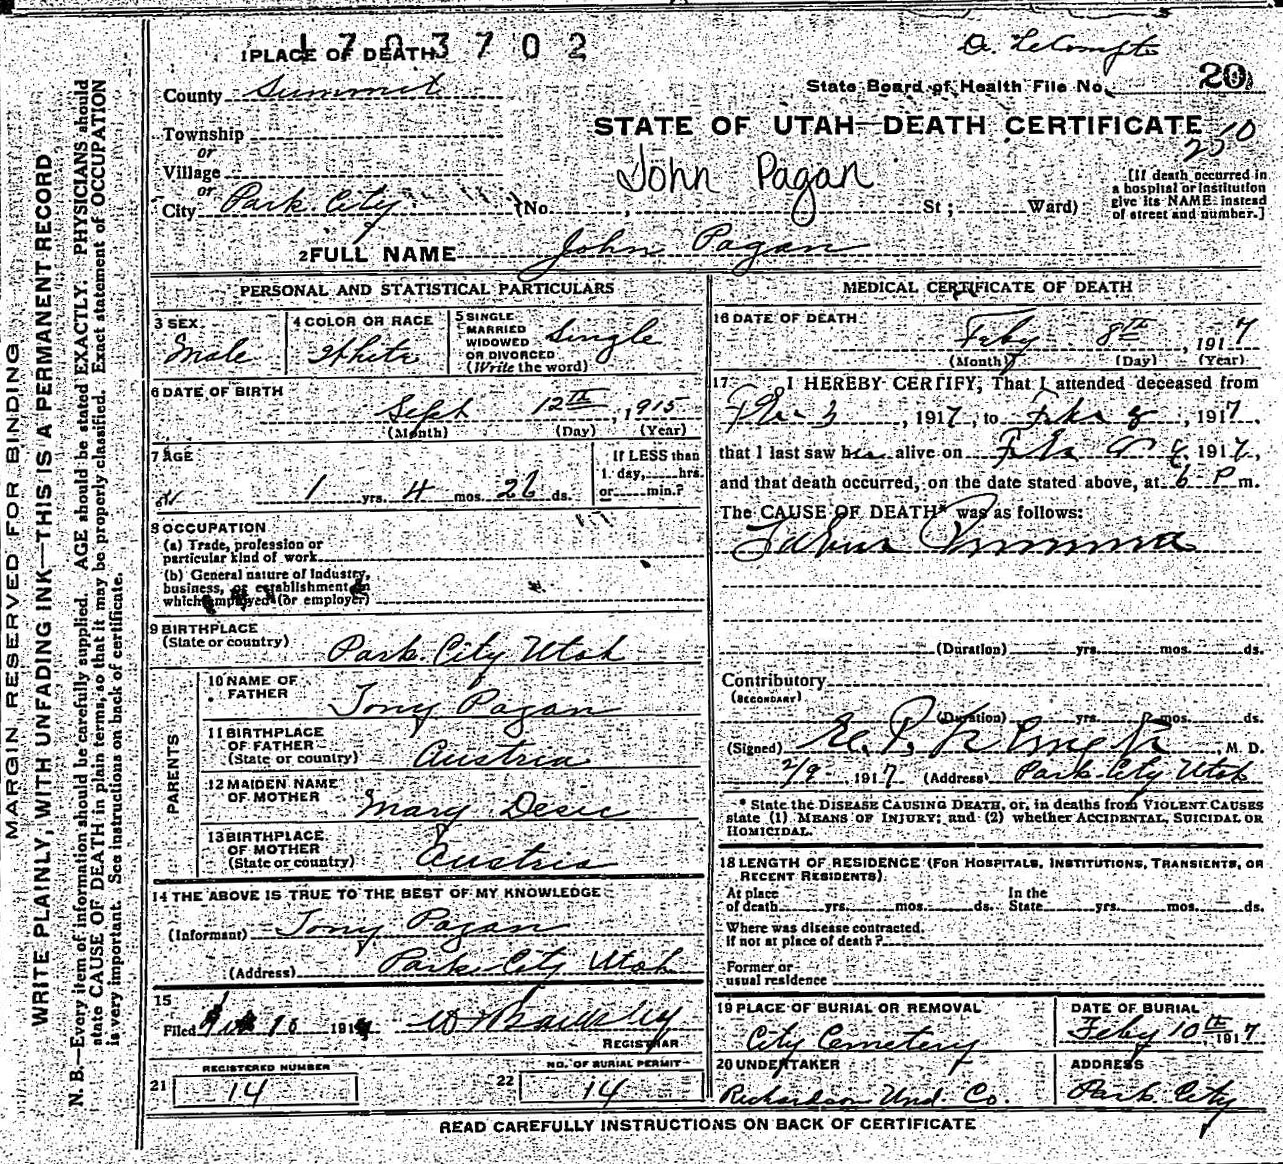 1703702
D. LeCompte
1 PLACE OF DEATH
State Board of Health File No. 20
County Summit
STATE OF UTAH—DEATH CERTIFICATE
250
Township
or
Village
or
City Park City (No. , St ; Ward)
John Pagan
[If death occurred in
a hospital or institution
give its NAME instead
of street and number.]
2 FULL NAME John Pagan
PERSONAL AND STATISTICAL PARTICULARS
3 SEX
Male
4 COLOR OR RACE
White
5 SINGLE
MARRIED
WIDOWED
OR DIVORCED
(Write the word)
Single
6 DATE OF BIRTH
Sept 12th, 1915
(Month) (Day) (Year)
7 AGE
1 yrs. 4 mos. 26 ds.
If LESS than
1 day, hrs.
or min.?
8 OCCUPATION
(a) Trade, profession or
particular kind of work
(b) General nature of Industry,
business, or establishment in
which employed (or employer)
9 BIRTHPLACE
(State or country)
Park City Utah
PARENTS
10 NAME OF
FATHER
Tony Pagan
11 BIRTHPLACE
OF FATHER
(State or country)
Austria
12 MAIDEN NAME
OF MOTHER
Mary Desic
13 BIRTHPLACE
OF MOTHER
(State or country)
Austria
14 THE ABOVE IS TRUE TO THE BEST OF MY KNOWLEDGE
(Informant) Tony Pagan
(Address) Park City Utah
15
Filed 191
REGISTRAR
REGISTERED NUMBER
21 14
NO. OF BURIAL PERMIT
22 14
MEDICAL CERTIFICATE OF DEATH
16 DATE OF DEATH
Feby 8th, 1917
(Month) (Day) (Year)
17 I HEREBY CERTIFY, That I attended deceased from
Feb 3, 1917, to Feb 8, 1917,
that I last saw him alive on Feb 8, 1917,
and that death occurred, on the date stated above, at 6 P m.
The CAUSE OF DEATH* was as follows:
(Duration) yrs. mos. ds.
Contributory
(SECONDARY)
(Duration) yrs. mos. ds.
(Signed) , M. D.
2/9 1917 (Address) Park City Utah
* State the DISEASE CAUSING DEATH, or, in deaths from VIOLENT CAUSES
state (1) MEANS OF INJURY; and (2) whether ACCIDENTAL, SUICIDAL OR
HOMICIDAL.
18 LENGTH OF RESIDENCE (FOR HOSPITALS, INSTITUTIONS, TRANSIENTS, OR
RECENT RESIDENTS).
At place In the
of death yrs. mos. ds. State yrs. mos. ds.
Where was disease contracted,
if not at place of death?
Former or
usual residence
19 PLACE OF BURIAL OR REMOVAL
City Cemetery
DATE OF BURIAL
Feby 10th 1917
20 UNDERTAKER
Richardson Und. Co.
ADDRESS
Park City
READ CAREFULLY INSTRUCTIONS ON BACK OF CERTIFICATE
MARGIN RESERVED FOR BINDING
WRITE PLAINLY, WITH UNFADING INK—THIS IS A PERMANENT RECORD
N. B.—Every item of information should be carefully supplied. AGE should be stated EXACTLY. PHYSICIANS should
state CAUSE OF DEATH in plain terms, so that it may be properly classified. Exact statement of OCCUPATION
is very important. See instructions on back of certificate.